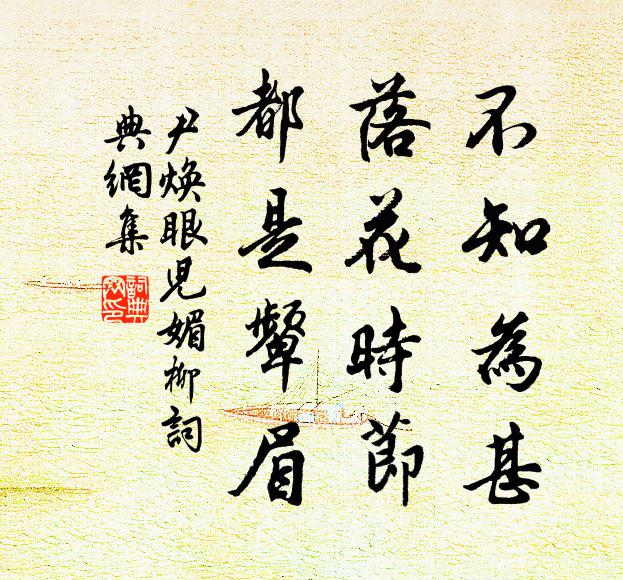 不知為甚
落花時節
都是顰眉
尹煥眼兒媚柳詞
典網集
詞典